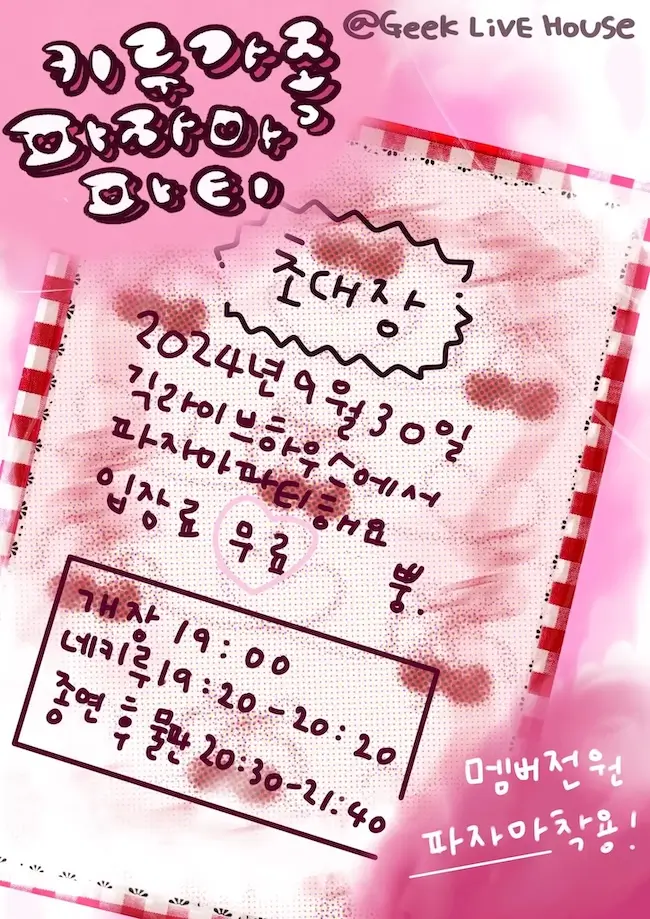 @GEEK LIVE HOUSE
키루가들
파자마
파티
초대장
2024년 9월 30일
긱라이브하우스에서
파자마파티해요
입장료 무료
뿡.
개장 19:00
네키루 19:20-20:20
종연 후 물판 20:30-21:40
멤버전원
파자마착용!